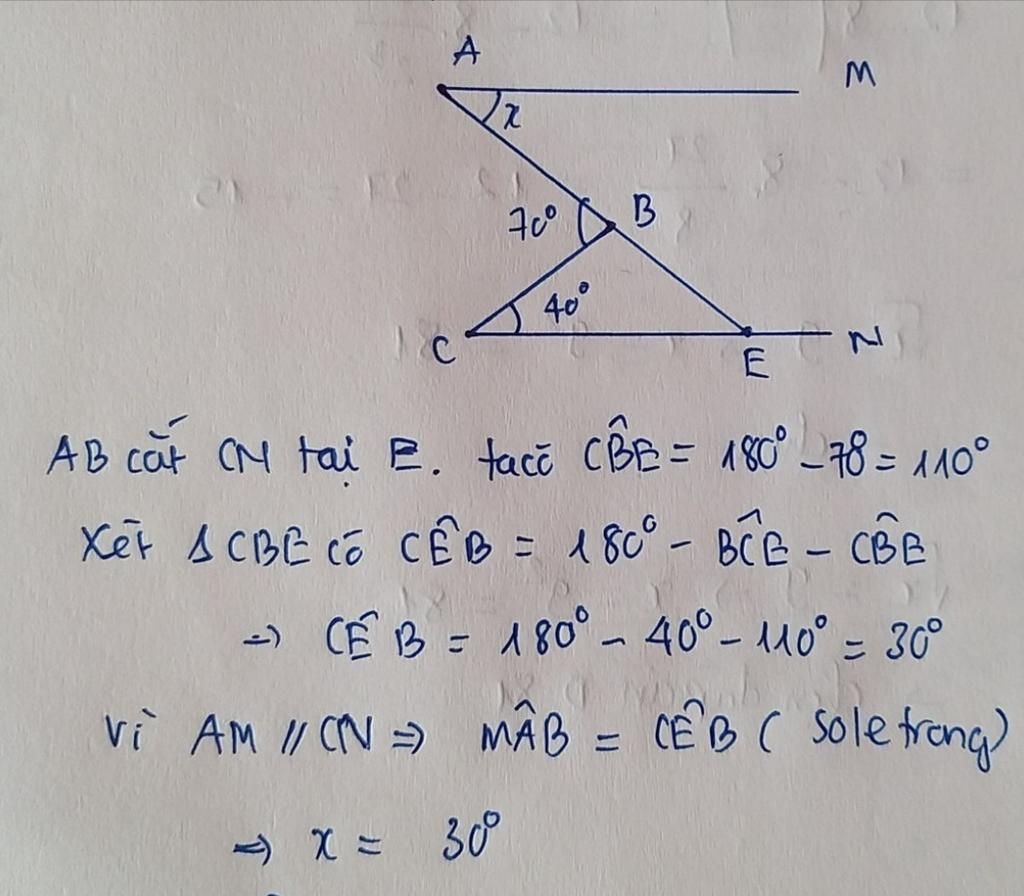 A
M
x
70° B
40°
C
N
E
AB cắt CN tại E. ta có CB̂E = 180° - 78 = 110°
Xét Δ CBE có CÊB = 180° - BĈE - CB̂E
=> CÊB = 180° - 40° - 110° = 30°
Vì AM // CN => MÂB = CÊB ( sole trong)
=> x = 30°